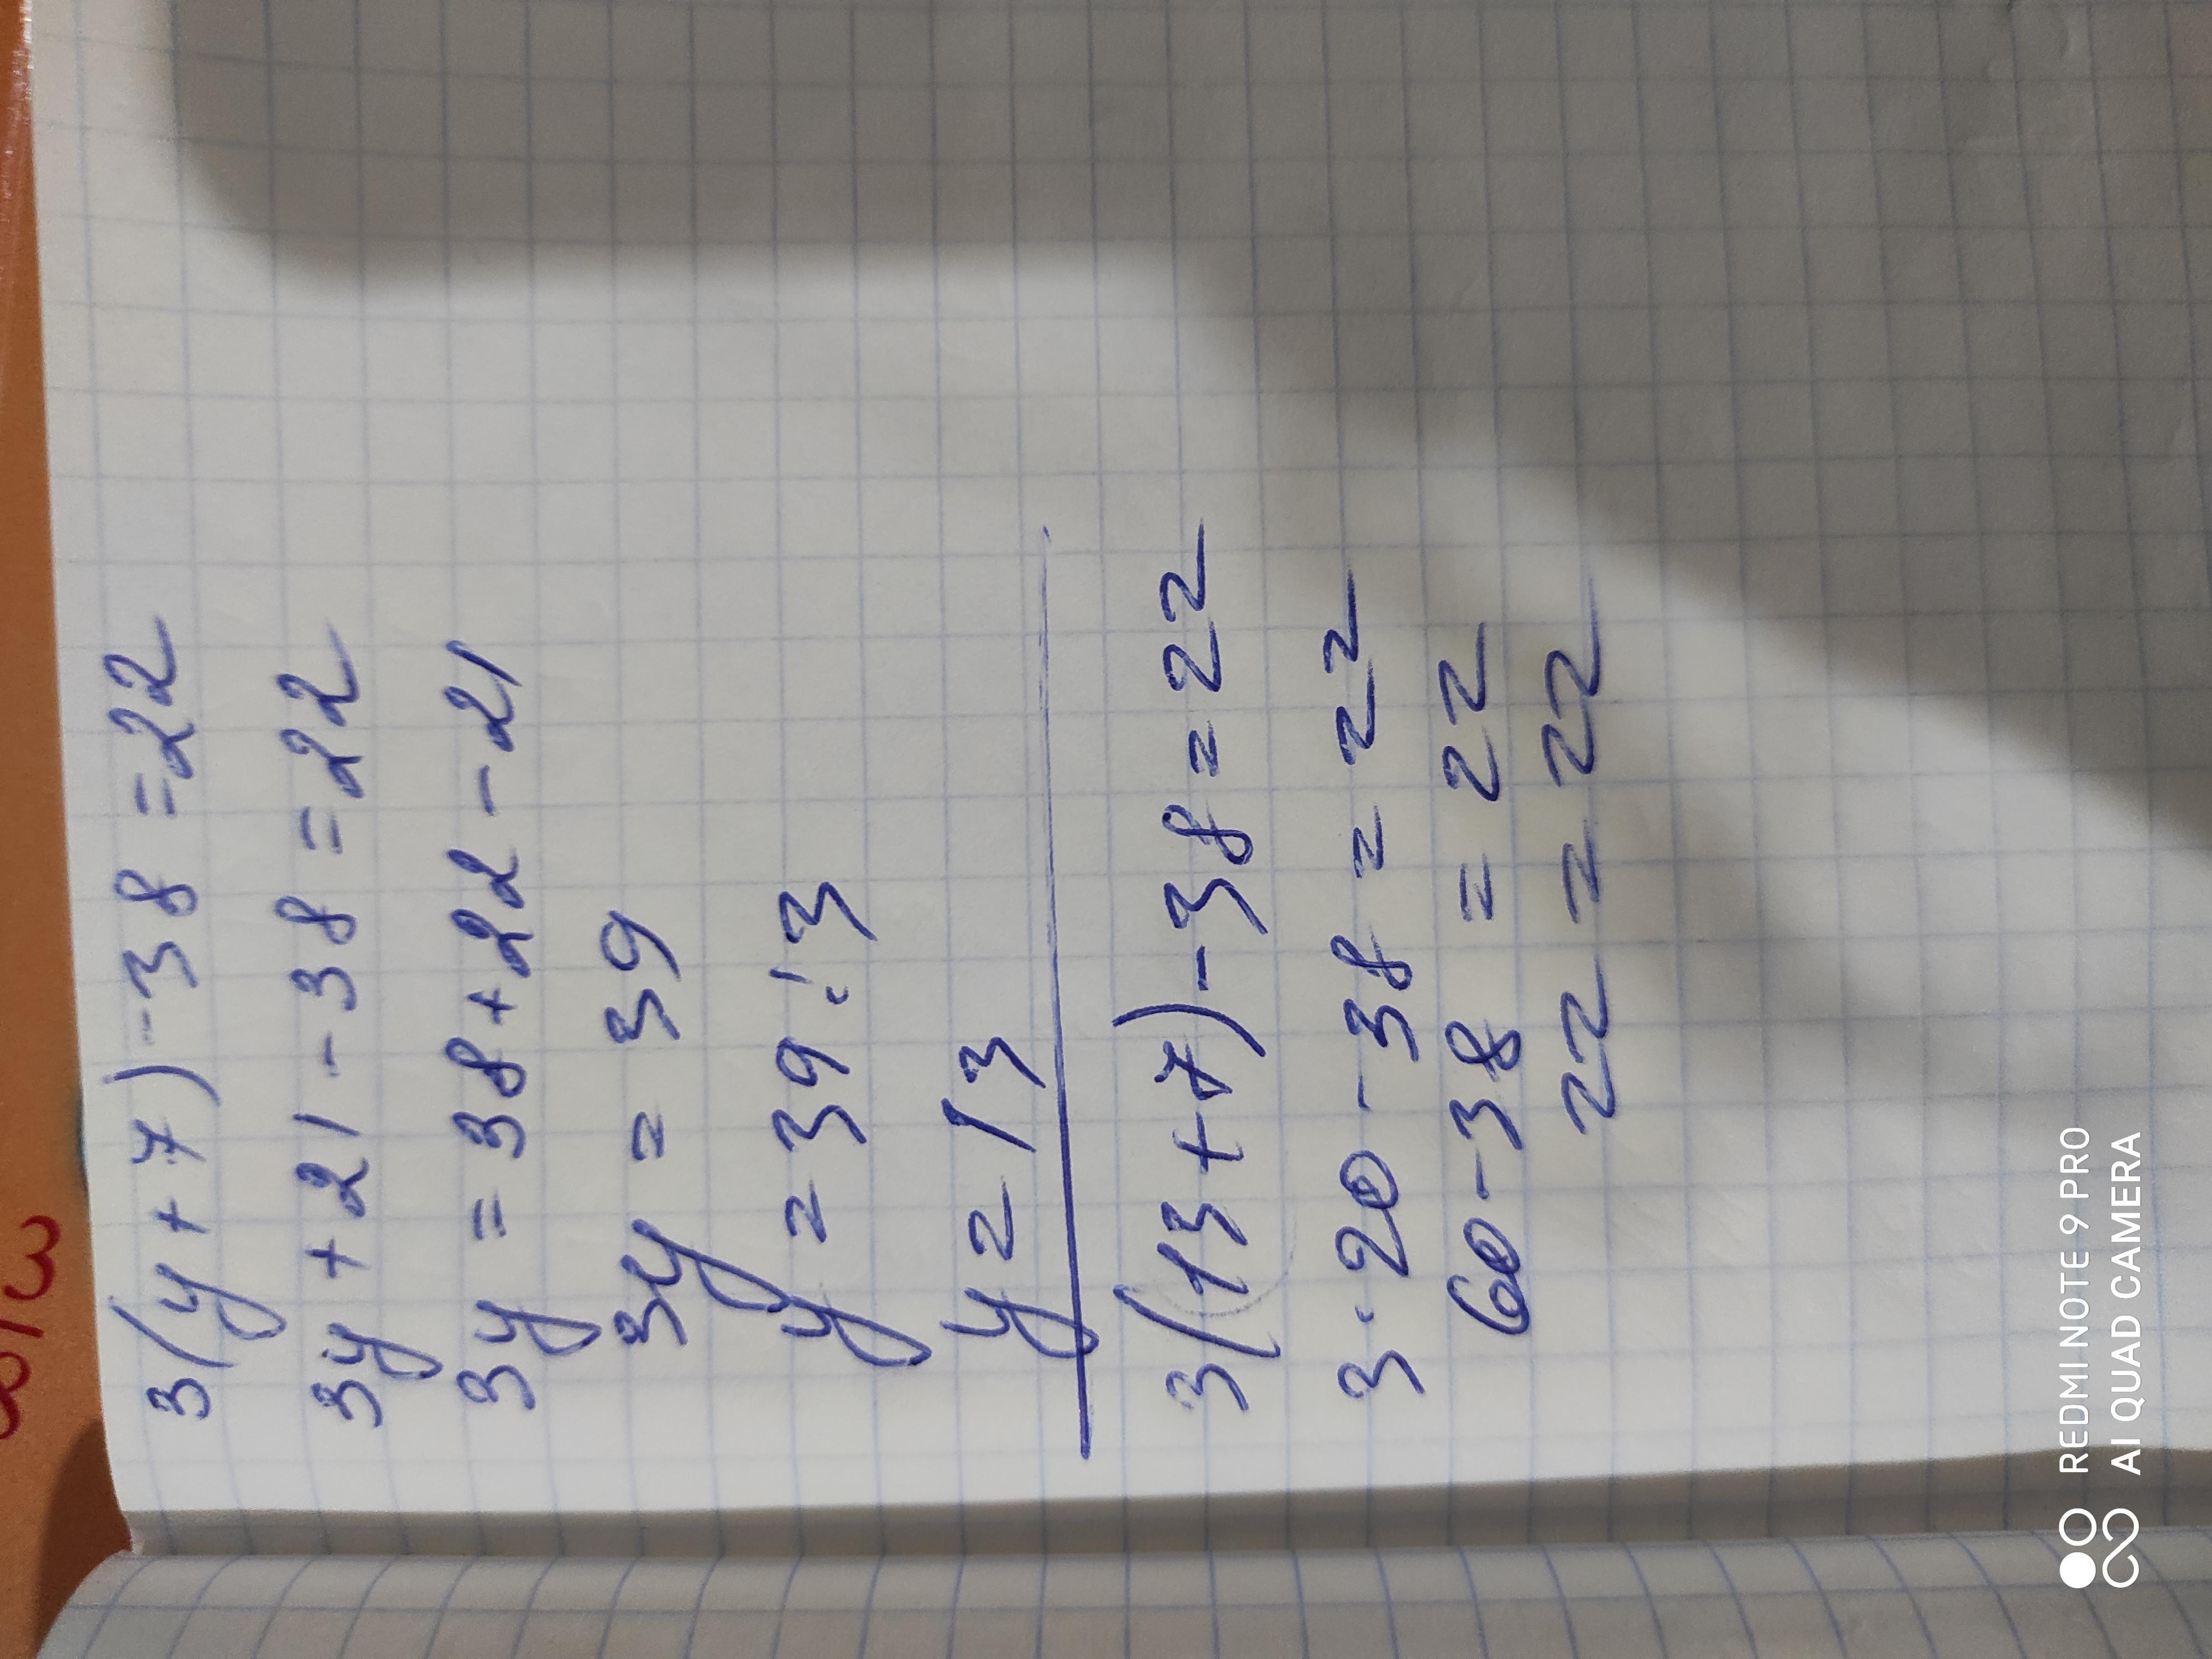 3(y+7)-38=22
3y+21-38=22
3y=38+22-21
3y=39
y=39:3
y=13
3(13+7)-38=22
3·20-38=22
60-38=22
22=22
REDMI NOTE 9 PRO
AI QUAD CAMERA